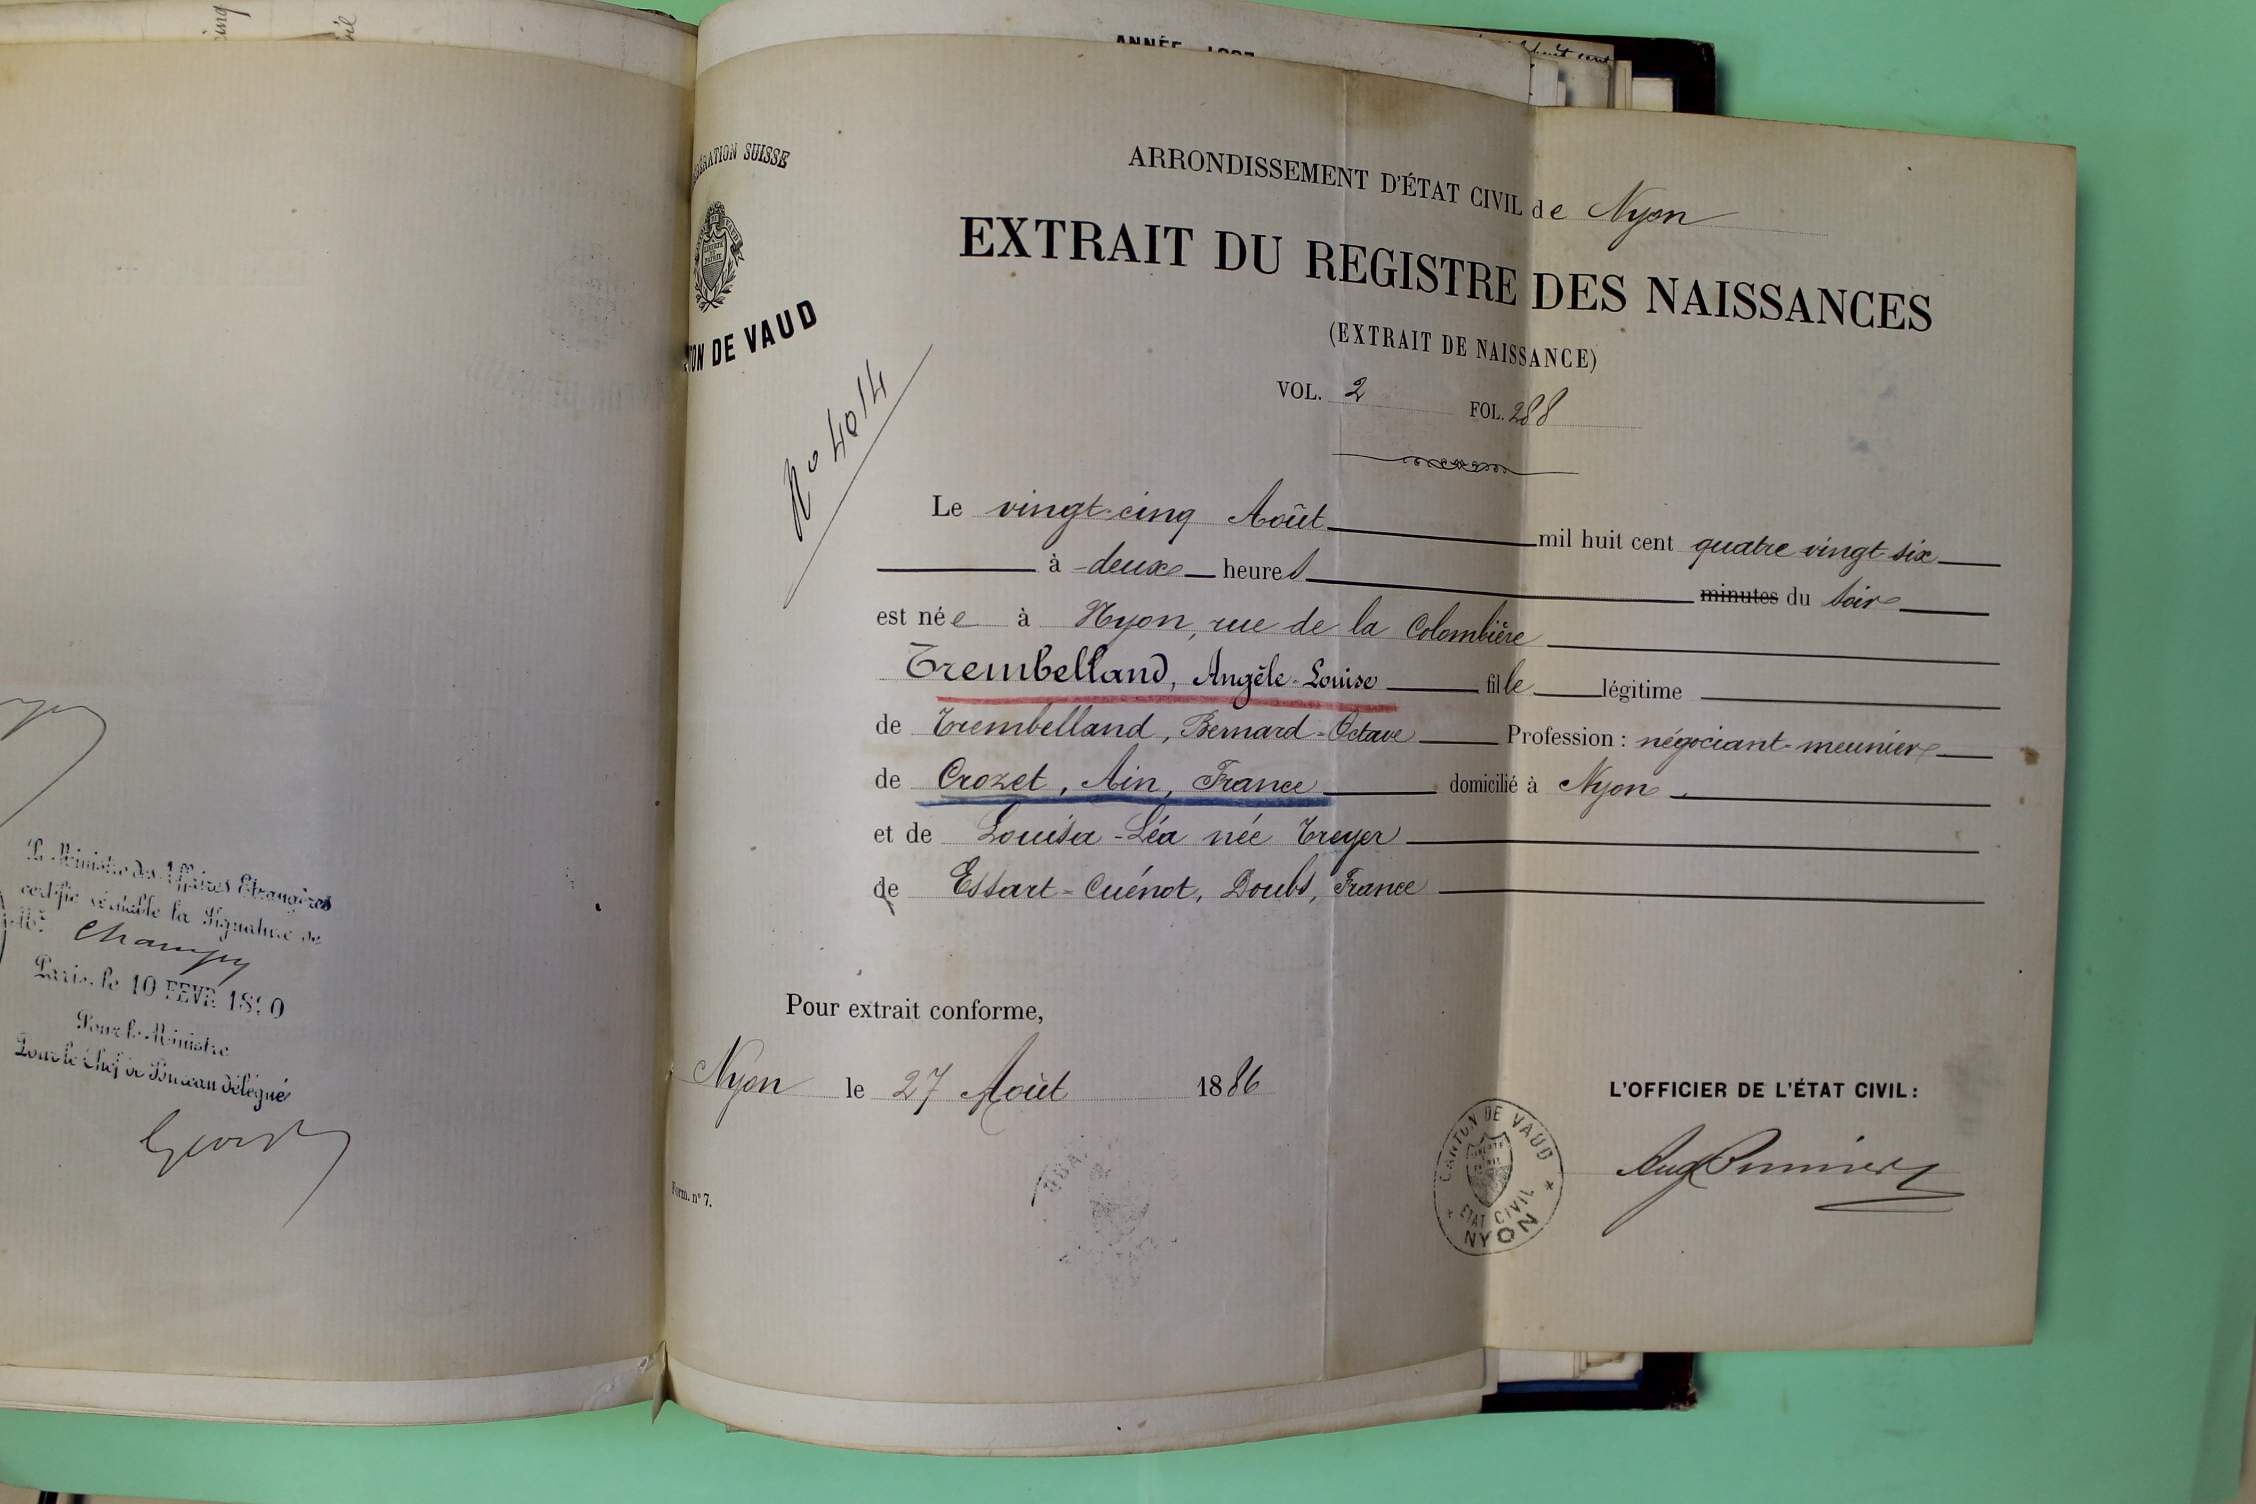 Le Ministre des Affaires Etrangères
certifie véritable la Signature de
Mr Champy
Paris, le 10 FEVR 1890
Pour le Ministre
Pour le Chef de Bureau délégué
ANNÉE 1887
SUISSE
LIBERTÉ ET PATRIE
DE VAUD
No 4014
ARRONDISSEMENT D'ÉTAT CIVIL de Nyon
EXTRAIT DU REGISTRE DES NAISSANCES
(EXTRAIT DE NAISSANCE)
VOL. 2 FOL. 288
Le vingt-cinq Août mil huit cent quatre vingt-six
à deux heures minutes du soir
est née à Nyon, rue de la Colombière
Trembelland, Angèle-Louise fille légitime
de Trembelland, Bernard-Octave Profession : négociant-meunier
de Crozet, Ain, France domicilié à Nyon
et de Louisa-Léa née Treyer
de Essart-Cuénot, Doubs, France
Pour extrait conforme,
Nyon le 27 Août 1886
L'OFFICIER DE L'ÉTAT CIVIL :
CANTON DE VAUD
ETAT CIVIL
NYON
Form. nº 7.